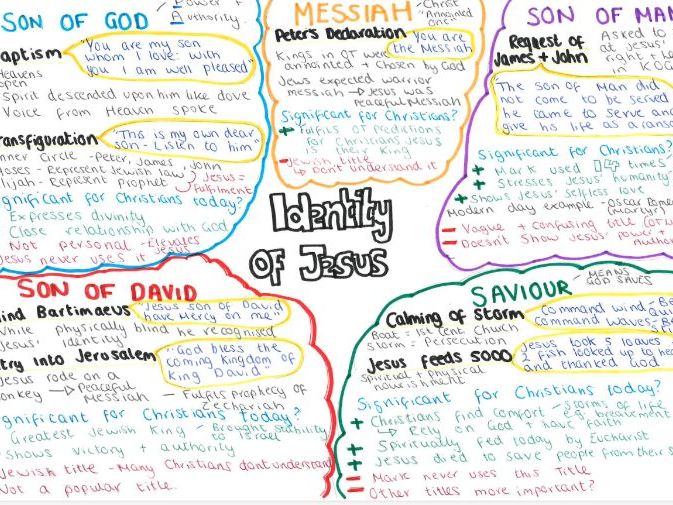 SON OF GOD
Power +
Authority.
aptism "You are my son
whom I love: with
you I am well pleased"
Heavens
open
Spirit descended upon him like dove
Voice from Heaven spoke
ransfiguration "This is my own dear
son - Listen to him"
nner Circle - Peter, James, John
oses - Represent Jewish law
lijah - Represent Prophet
Jesus =
fulfilment
gnificant for Christians today?
Expresses divinity
Close relationship with God
Not personal - Elevates
Jesus never uses it
MESSIAH
Christ
"Annointed
one"
Peter's Declaration "You are
the Messiah
Kings in OT we
annointed + chosen by God
Jews expected warrior
messiah → Jesus was
peaceful Messiah
Significant for Christians?
+ Fulfils OT Predictions
for Christians Jesus
their King
- Jewish title
→ Dont understand it
SON OF MAN
Request of
James + John
Asked to
at Jesus'
right + le
in KOG
The son of Man did
not come to be served
he came to serve and
give his life as a ransom
Significant for Christians?
+ Mark used 14 times
+ Stresses Jesus' humanity
+ Shows Jesus' selfless love
Modern day example - Oscar Rome
(martyr)
= Vague + confusing title (OT
= Doesn't show Jesus' power +
Author
Identity
OF JESUS
SON OF DAVID
ind Bartimaeus "Jesus son of David
have Mercy on me"
While physically blind he recognised
Jesus' identity
try into Jerusalem "God bless the
coming Kingdom of
King David"
Jesus rode on a
onkey → Peaceful
Messiah - Fulfils prophecy of
Zechariah
gnificant for Christians Today?
Greatest Jewish King - Brought stability
to Israel
Shows victory + authority
Jewish title - Many Christians dont understand
Not a popular title.
SAVIOUR
MEANS
GOD SAVES
Calming of Storm - Command wind - Be
qui
command waves - Be
Boat = 1st cent church
Storm = Persecution
Jesus feeds 5000 Jesus took 5 loaves
2 fish looked up to he
and thanked God
Spiritual + physical
nourishment
Significant for Christians today?
+ Christians find comfort - Storms of life
e.g. breavement
→ Rely on God + have faith
+ Spiritually fed today by Eucharist
+ Jesus died to save people from their s
= Mark never uses this Title
= Other titles more important?